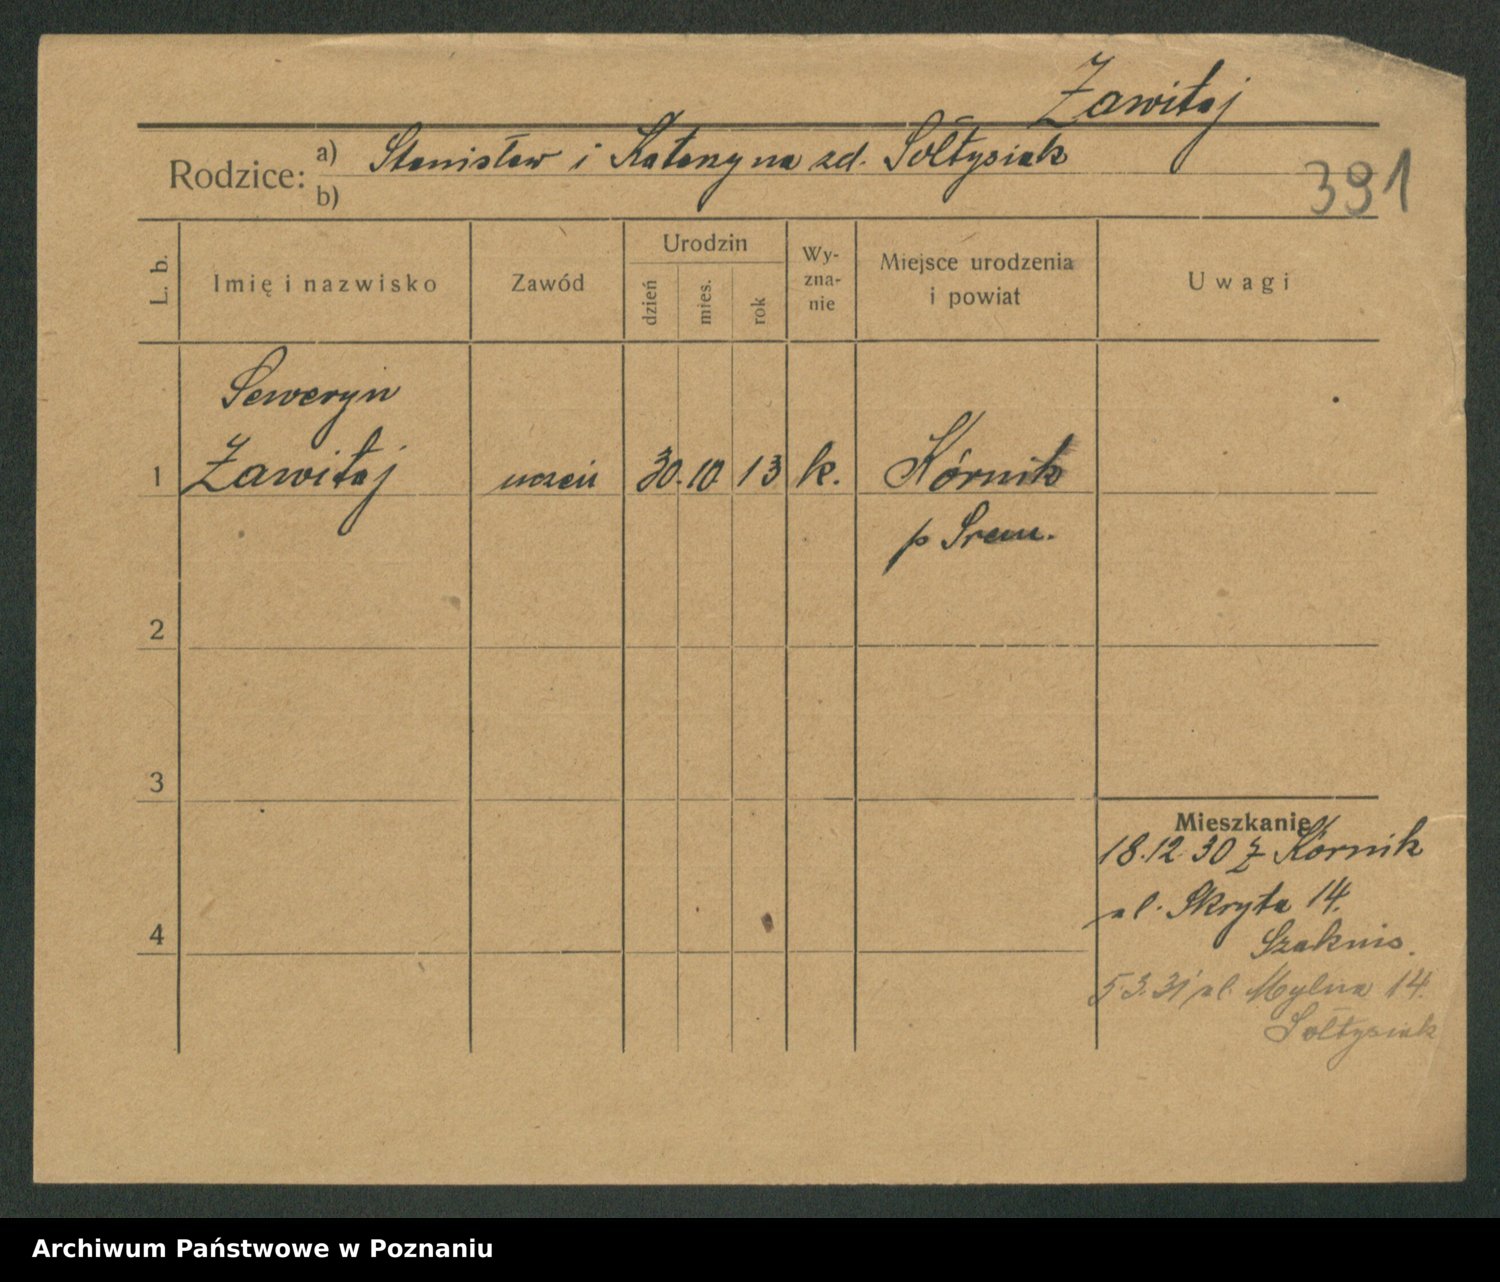 Zawitaj
Rodzice: a) Stanisław i Katarzyna zd. Sołtysiak
b)
391
L. b.
Imię i nazwisko
Zawód
Urodzin
dzień
mies.
rok
Wy-
zna-
nie
Miejsce urodzenia
i powiat
Uwagi
Seweryn
1 Zawitaj uczeń 30. 10 13 k. Kórnik
p Srem.
2
3
4
Mieszkanie
18.12 30 z Kórnik
ul. Skryta 14.
Szaknis.
5.3.31 ul. Mylna 14.
Sołtysiak
Archiwum Państwowe w Poznaniu